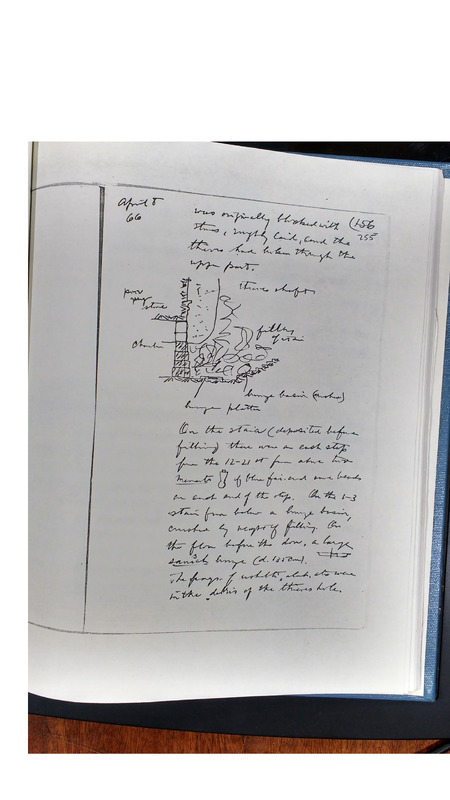 April 8
66
(156
255
was originally blocked with
stones, roughly laid, and the
thieves had broken through the
upper part.
thieves shaft
poor
stone
filling
of stair
Chamber
bronze basin (crushed)
bronze platter
On the stair (deposited before
filling) there was on each step
from the 12-21st from above two
menats of blue fai. and some beads
on each end of the step. On the 1-3
stair from below a bronze basin,
crushed by weight of filling. On
the floor before the door, a large
bronze (d. 135 cm).
The frags. of ushabtis, etc. were
in the debris of the thieves hole.